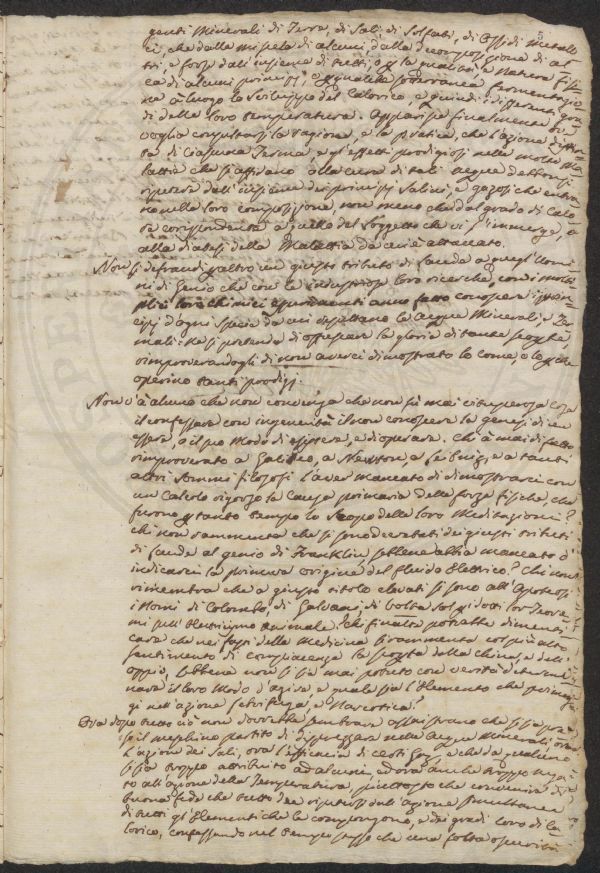 genti Minerali di Terra, di Sali, di Solfati, di Ossidi metalli
ci, che dalla miscela di alcuni, dalla decomposizione di al
tri, e forse dall'insieme di tutti, o per la qualità, e natura fisi
ca di alcuni principj, o per qualche sotterranea fermentazio
ne à luogo lo sviluppo del Calorico, e quindi i differenti gra
di della loro temperatura. Apparisce finalmente se
voglia consultarsi la ragione, e la pratica, che l'azione diver
sa di ciascuna Terma, e gl'effetti prodigiosi nelle molte Ma
lattie che si affidano alla cura di tali acque debbonsi
ripetere dall'insieme dei principj Salini, e gazosi che entra
no nella loro composizione, non meno che dal grado di Calo
re corrispondente a quello del Soggetto che vi s'immerge, e
alla diatesi della Malattia da cui è attaccato.
Non si defraudi per altro un giusto tributo di Laude a quegl'Uomi
ni di Genio che con le industriose loro ricerche, con i molti
plici loro chimici esperimenti anno fatto conoscere i prin
cipj d'ogni specie da cui risultano le acque Minerali, e Ter
mali: Nè si pretenda di offuscare la gloria di tante scoperte,
rimproverandogli di non averci dimostrato la come, e la perchè
operino tanti prodigj.
Non v'à alcuno che non convenga che non fù mai vituperosa cosa
il confessare con ingenuità il non conoscere la genesi di un
essere, o il suo Modo di esistere, e di operare. Chi à mai di fatto
rimproverato a Galileo, a Newton, a Leibniz, e a tanti
altri Sommi filosofi l'aver mancato di dimostrarci con
un Calcolo rigoroso la causa primaria delle forze fisiche, che
furono per tanto tempo lo Scopo delle loro Meditazioni?
Chi non rammenta che si sono decretati dei giusti tributi
di Laude al genio di Franklin, sebbene abbia mancato d'
indicarci la primeva origine del fluido Elettrico? Chi non
rimembra che a giusto titolo elevati si sono all'Apoteosi
i Nomi di Colombo, di Galvani, di Volta sol per i dotti lor Teore
mi sull'Elettricismo animale? Chi finalmente potrebbe dimenti
care che nei fasti della Medicina si rammenta con più alto
sentimento di compiacenza la scoperta della China, e dell'
oppio, sebbene non si sia mai potuto con verità determi
nare il loro modo d'agire, e quale sia l'Elemento che primeg
gi nell'azione febrifuga, e Narcotica?
Ora dopo tutto ciò non dovrebbe sembrare assai strano che si sia pre
so il meschino partito di disprezzare nelle acque Minerali, ora
l'azione dei Sali, ora l'efficacia di certi Gaz, e che da qualcuno
si sia troppo attribuito ad alcuni, ed ora anche troppo nega
to all'azione della Temperatura, piuttosto che convenire di
buona fede che tutto deve ripetersi dall'azione simultanea
di tutti gl'Elementi che le compongono, e dei gradi loro di Ca
lorico, confessando nel tempo stesso che una folta oscurità